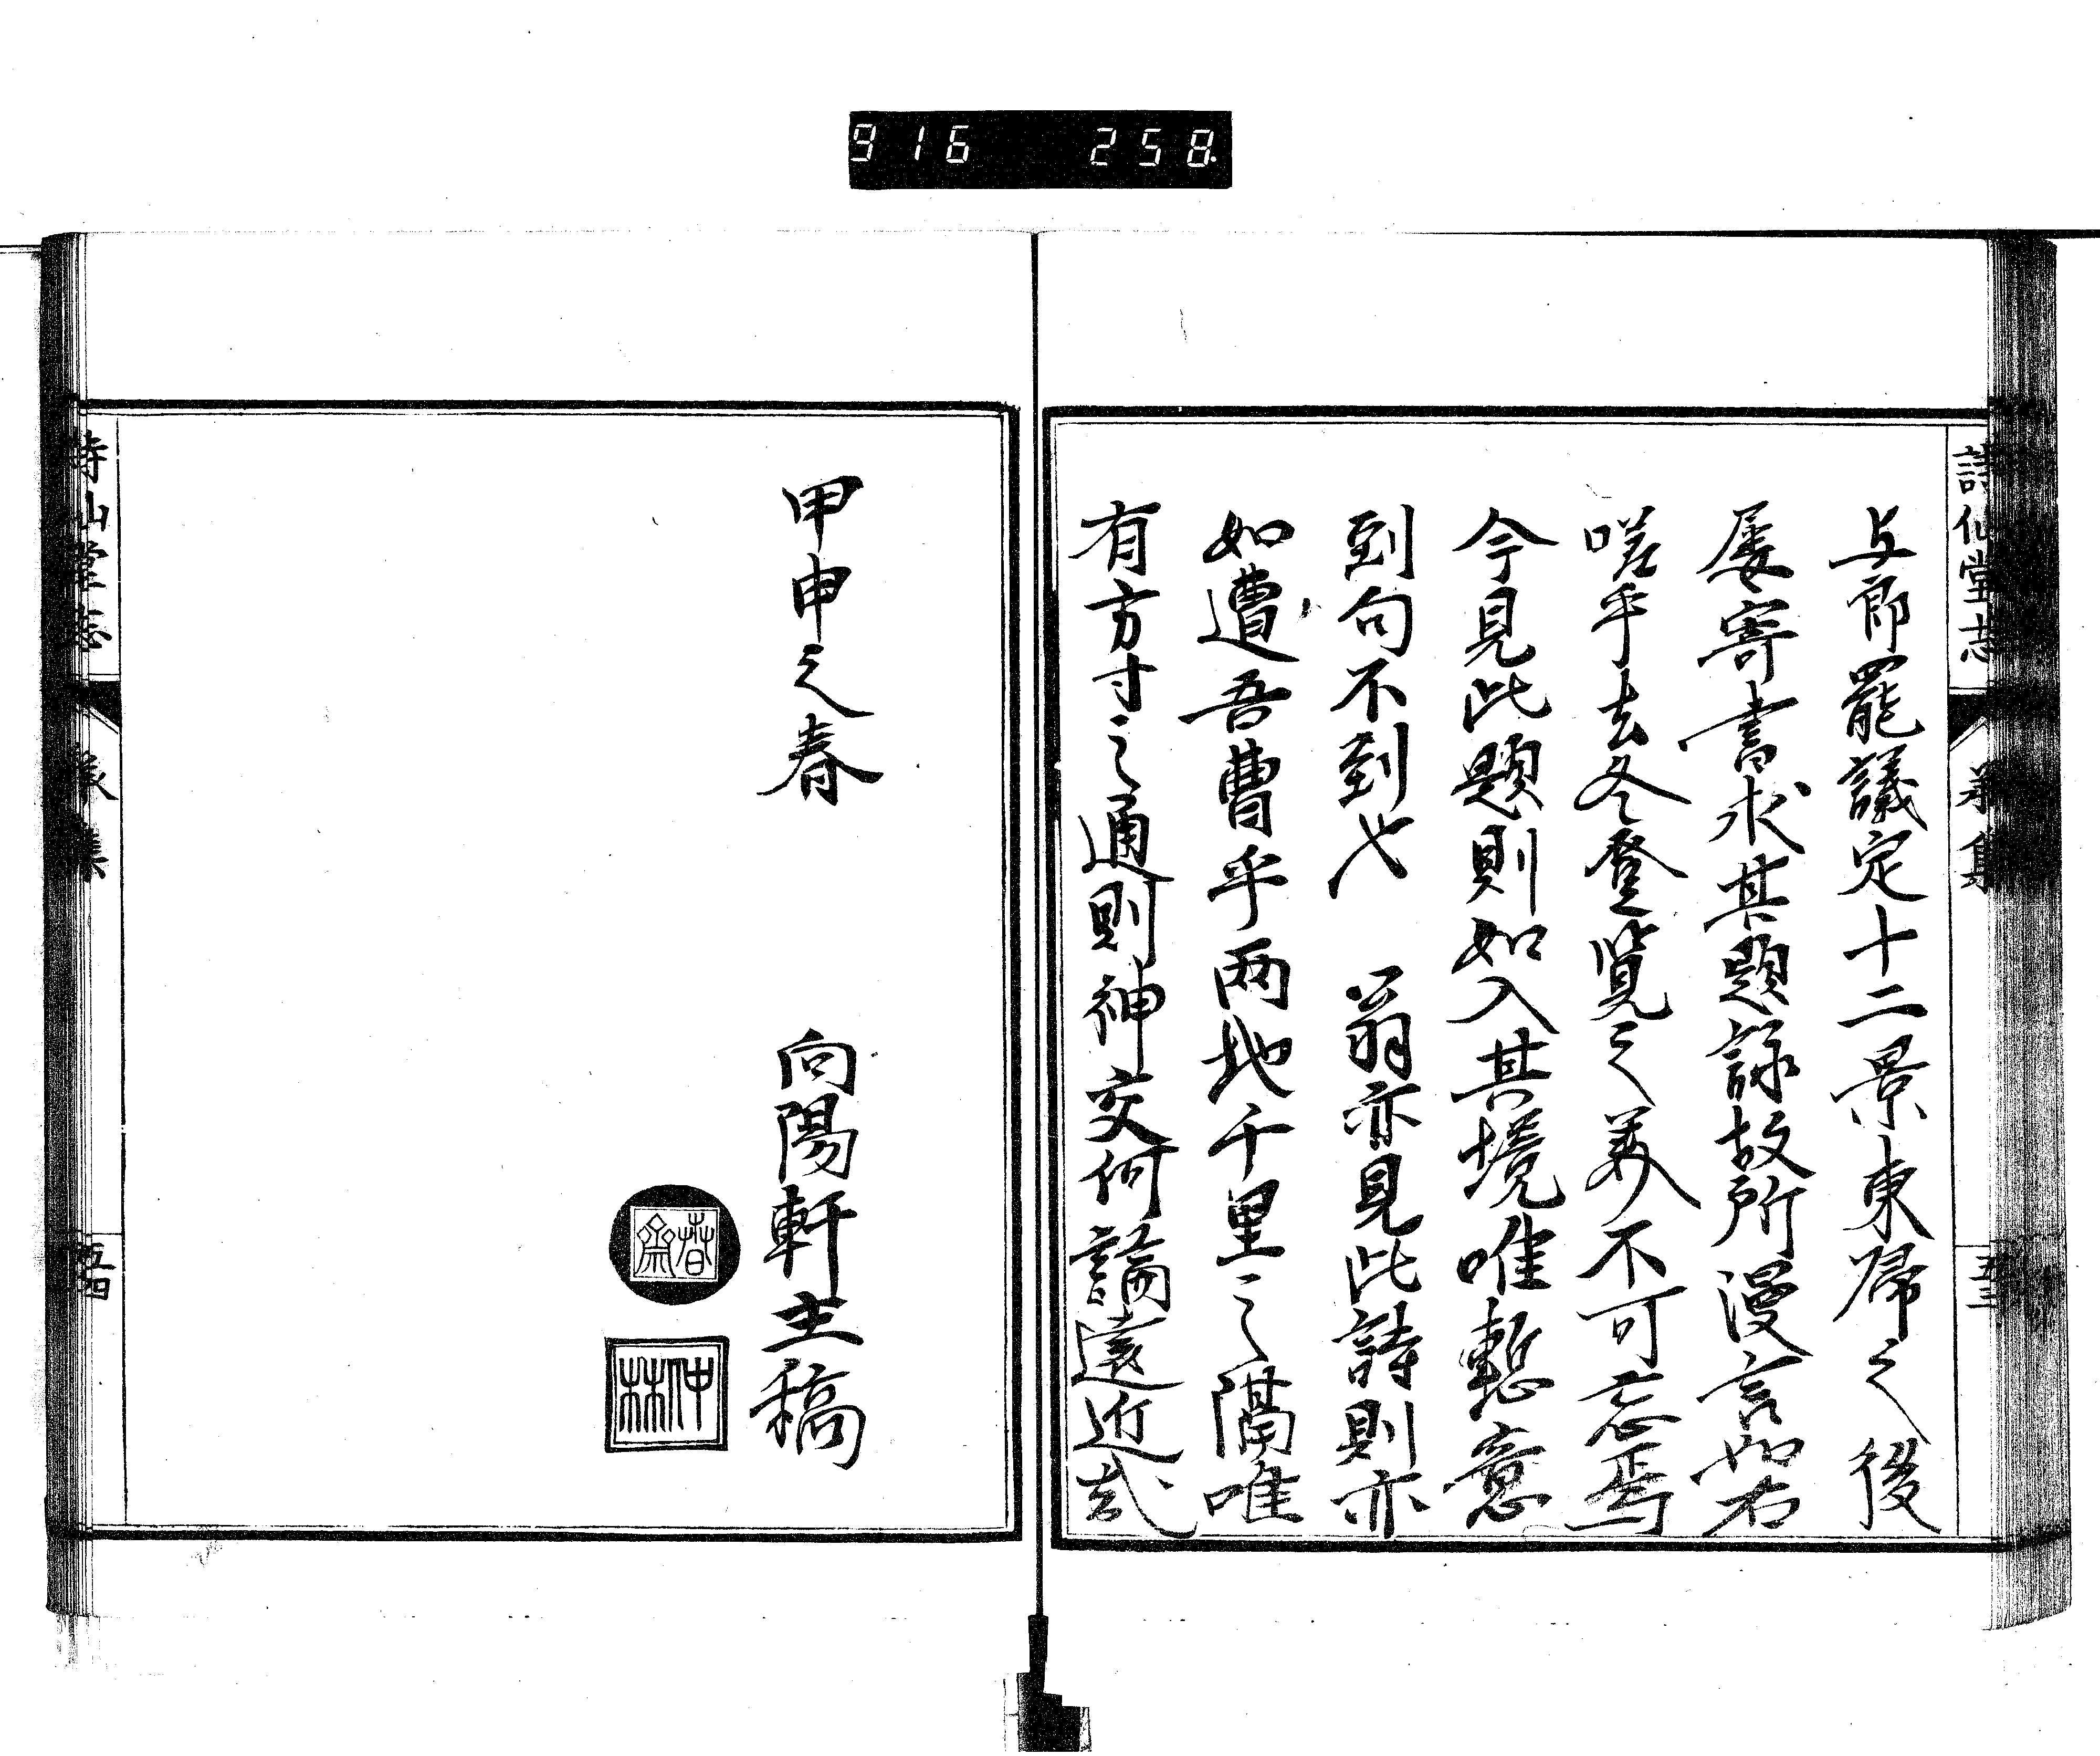 916 258
詩仙堂志
五十三
与節罷議定十二景東歸之後
屡寄書求其題詠故所漫言如右
嗟乎去冬登覧之美不可忘焉
今見此題則如入其境唯慙意
到句不到也 翁亦見此詩則亦
如遭吾曹乎兩地千里之隔唯
有方寸之通則神交何論遠近哉
甲申之春 向陽軒主稿
春齋
仲林